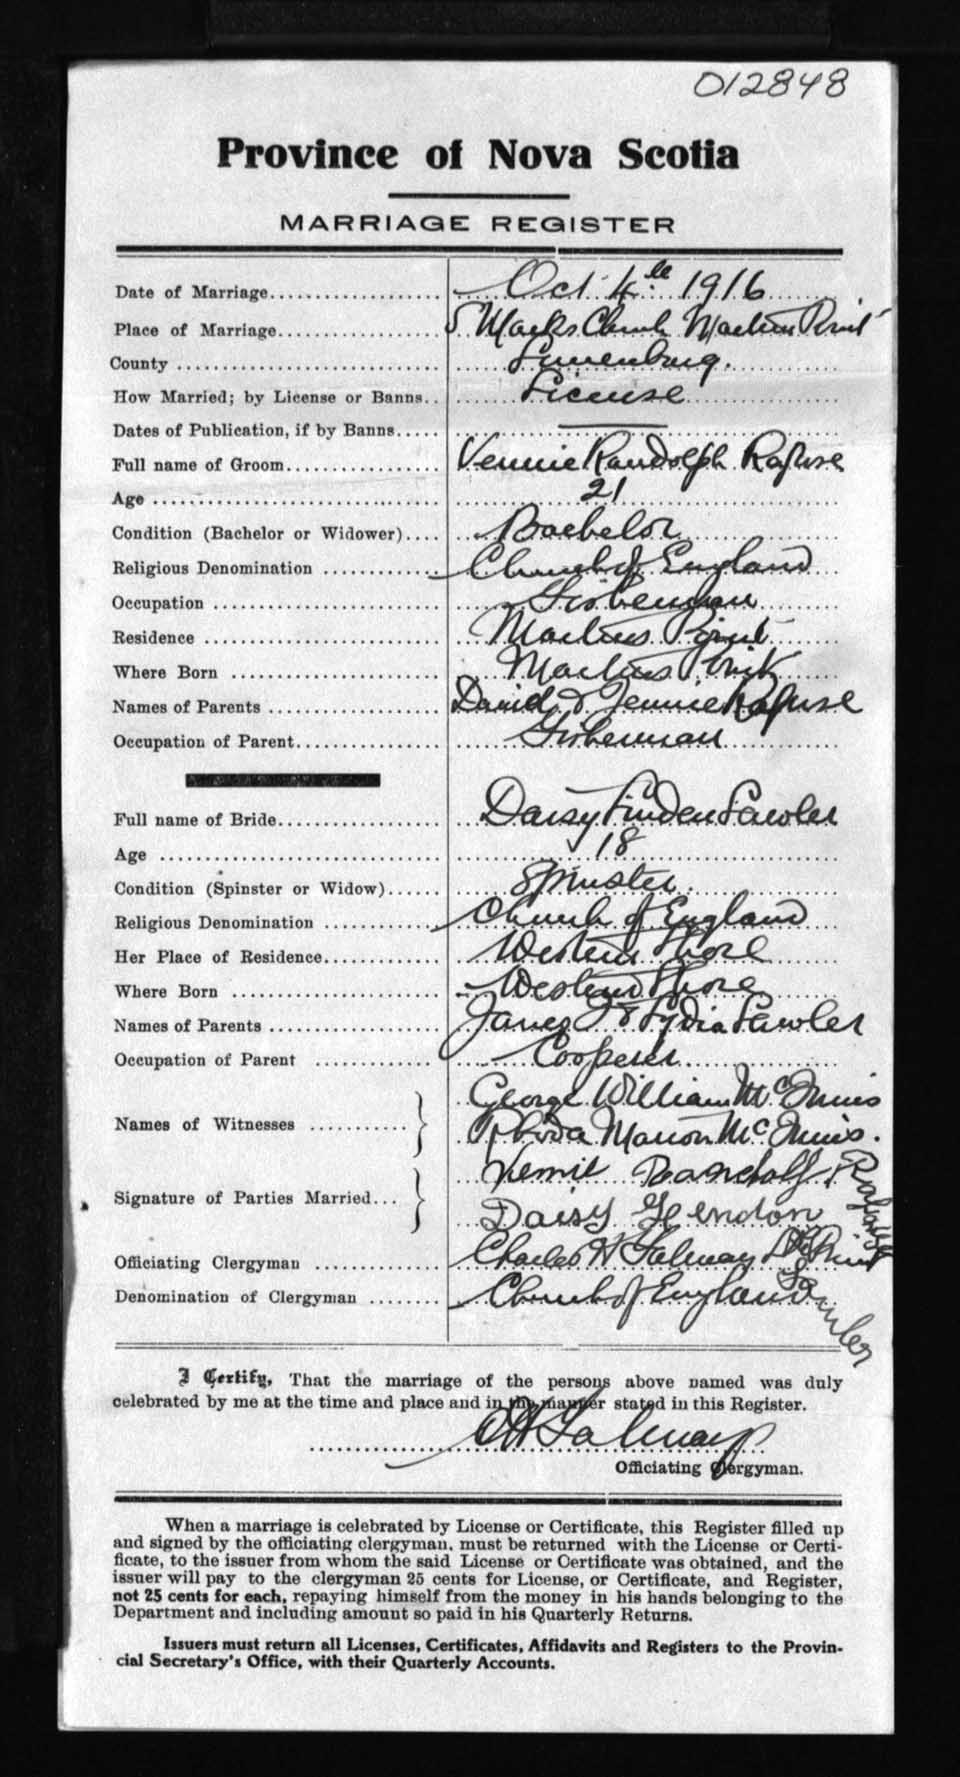 012848
Province of Nova Scotia
MARRIAGE REGISTER
Date of Marriage.................... Oct 4th 1916
Place of Marriage................... S Marks Church Martins Point
County .............................. Lunenburg.
How Married; by License or Banns.. License
Dates of Publication, if by Banns..... —
Full name of Groom.................. Vennie Randolph Rafuse
Age ................................. 21
Condition (Bachelor or Widower).... Bachelor
Religious Denomination ............ Church of England
Occupation .......................... Fisherman
Residence ........................... Martins Point
Where Born ........................ Martins Point
Names of Parents ................... David & Jennie Rafuse
Occupation of Parent................ Fisherman
Full name of Bride................... Daisy Linden Lawler
Age ................................ 18
Condition (Spinster or Widow)...... Spinster.
Religious Denomination ............ Church of England
Her Place of Residence.............. Western Shore
Where Born ........................ Western Shore
Names of Parents ................... James & Lydia Lawler
Occupation of Parent ............... Cooperer
Names of Witnesses ........... } George William McInnis
Rhoda Marion McInnis.
Signature of Parties Married... } Randolf Rafuse
Daisy Lawler
Officiating Clergyman ............... Charles W
Denomination of Clergyman ........ Church of England
I Certify, That the marriage of the persons above named was duly
celebrated by me at the time and place and in the manner stated in this Register.
Officiating Clergyman.
When a marriage is celebrated by License or Certificate, this Register filled up
and signed by the officiating clergyman, must be returned with the License or Certi-
ficate, to the issuer from whom the said License or Certificate was obtained, and the
issuer will pay to the clergyman 25 cents for License, or Certificate, and Register,
not 25 cents for each, repaying himself from the money in his hands belonging to the
Department and including amount so paid in his Quarterly Returns.
Issuers must return all Licenses, Certificates, Affidavits and Registers to the Provin-
cial Secretary's Office, with their Quarterly Accounts.